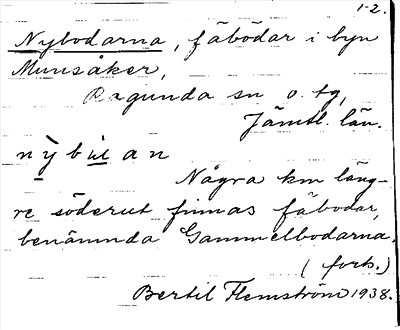 1-2.
Nybodarna, fäbodar i byn
Munsåker,
Ragunda sn o. tg,
Jämtl. län.
nỳbu̇an
Några km läng-
re söderut finnas fäbodar,
benämnda Gammelbodarna.
(forts.)
Bertil Flemström 1938.